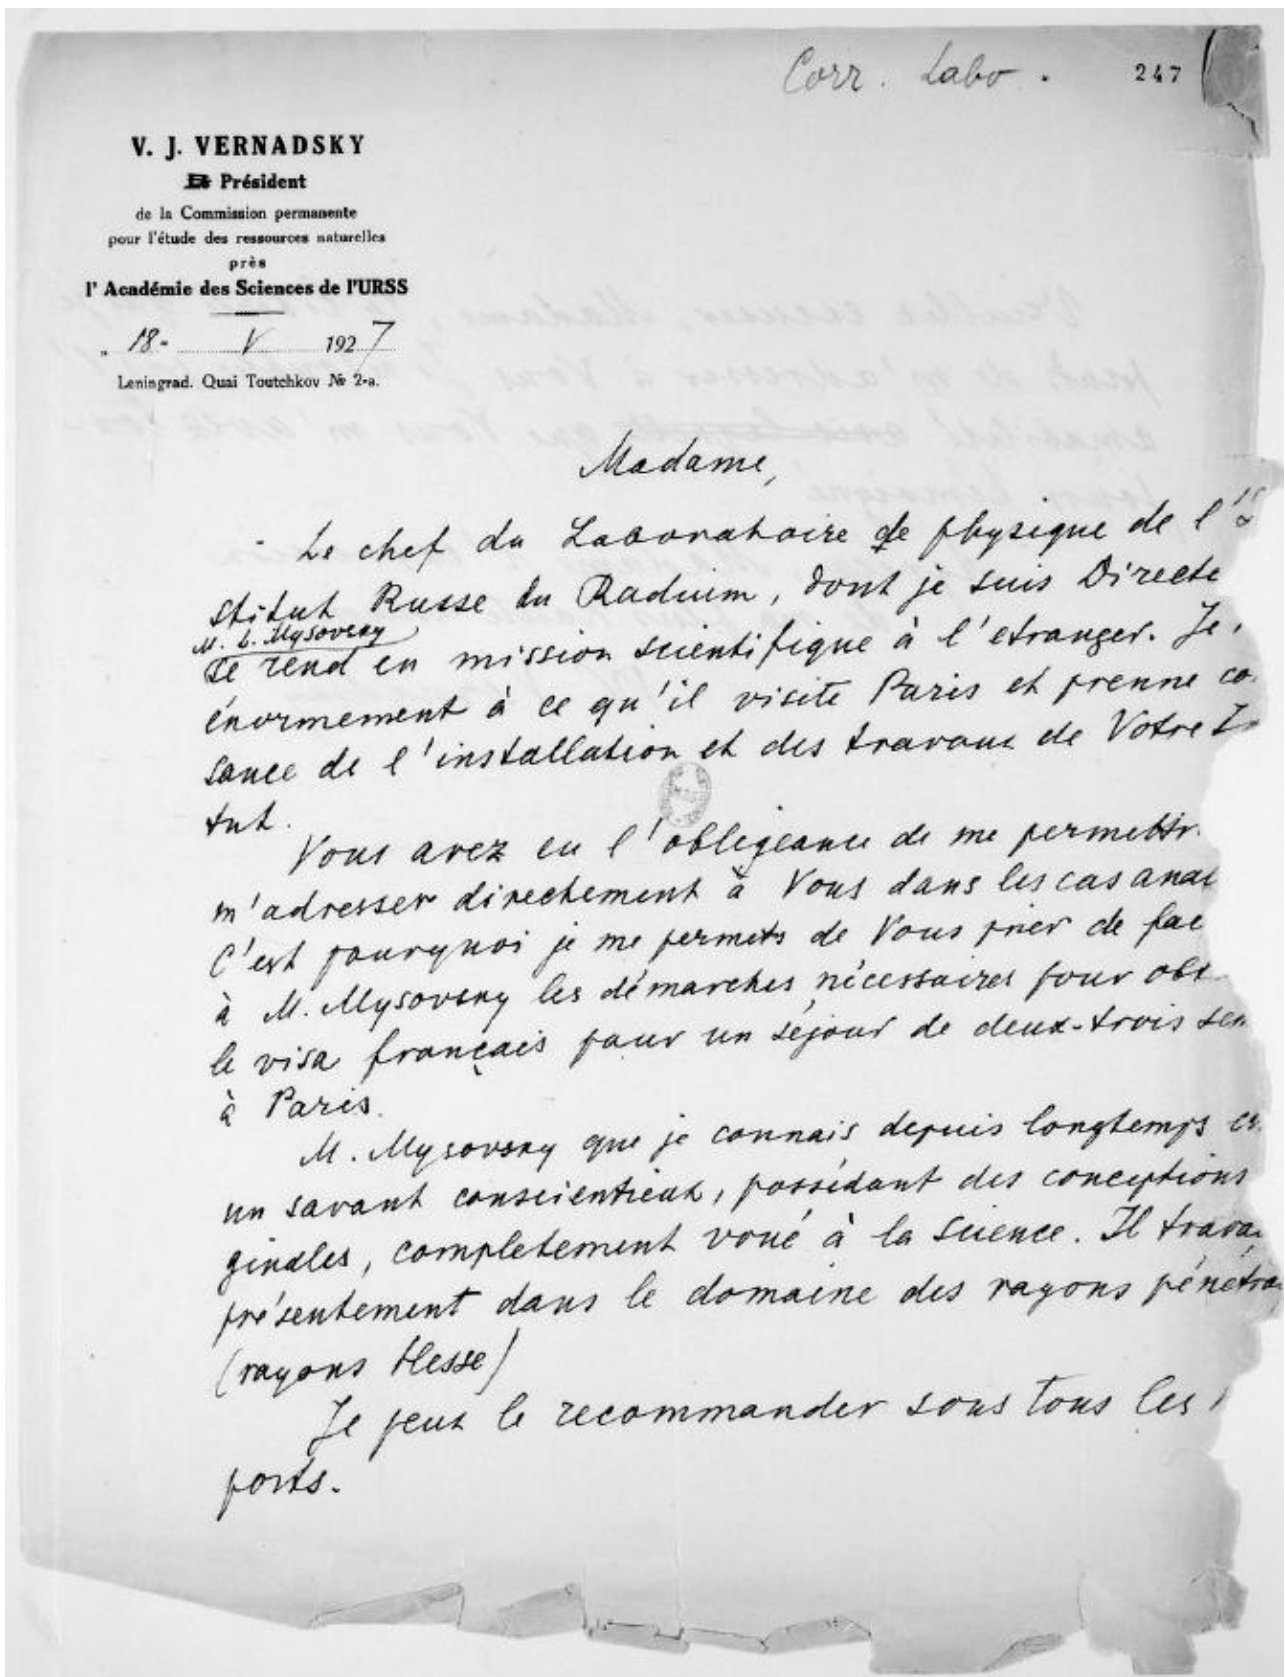 Corr. Labo.
247
V. J. VERNADSKY
Président
de la Commission permanente
pour l'étude des ressources naturelles
près
l'Académie des Sciences de l'URSS
„ 18- V 1927
Leningrad. Quai Toutchkov № 2-a.
Madame,
Le chef du Laboratoire de physique de l'
stitut Russe du Radium, dont je suis Directe
M. L. Mysovsky
se rend en mission scientifique à l'etranger. Je
énormement à ce qu'il visite Paris et prenne co
sance de l'installation et des travaux de Votre I
tut.
Vous avez eu l'obligeance de me permettr
m'adresser directement à Vous dans les cas anal
C'est pourquoi je me permets de Vous prier de fac
à M. Mysovsky les démarches nécessaires pour obt
le visa français pour un séjour de deux-trois sem
à Paris.
M. Mysovsky que je connais depuis longtemps es
un savant conscientieux, possédant des conceptions
ginales, completement voué à la Science. Il travai
présentement dans le domaine des rayons pénétra
(rayons Hesse)
Je peux le recommander sous tous les
ports.